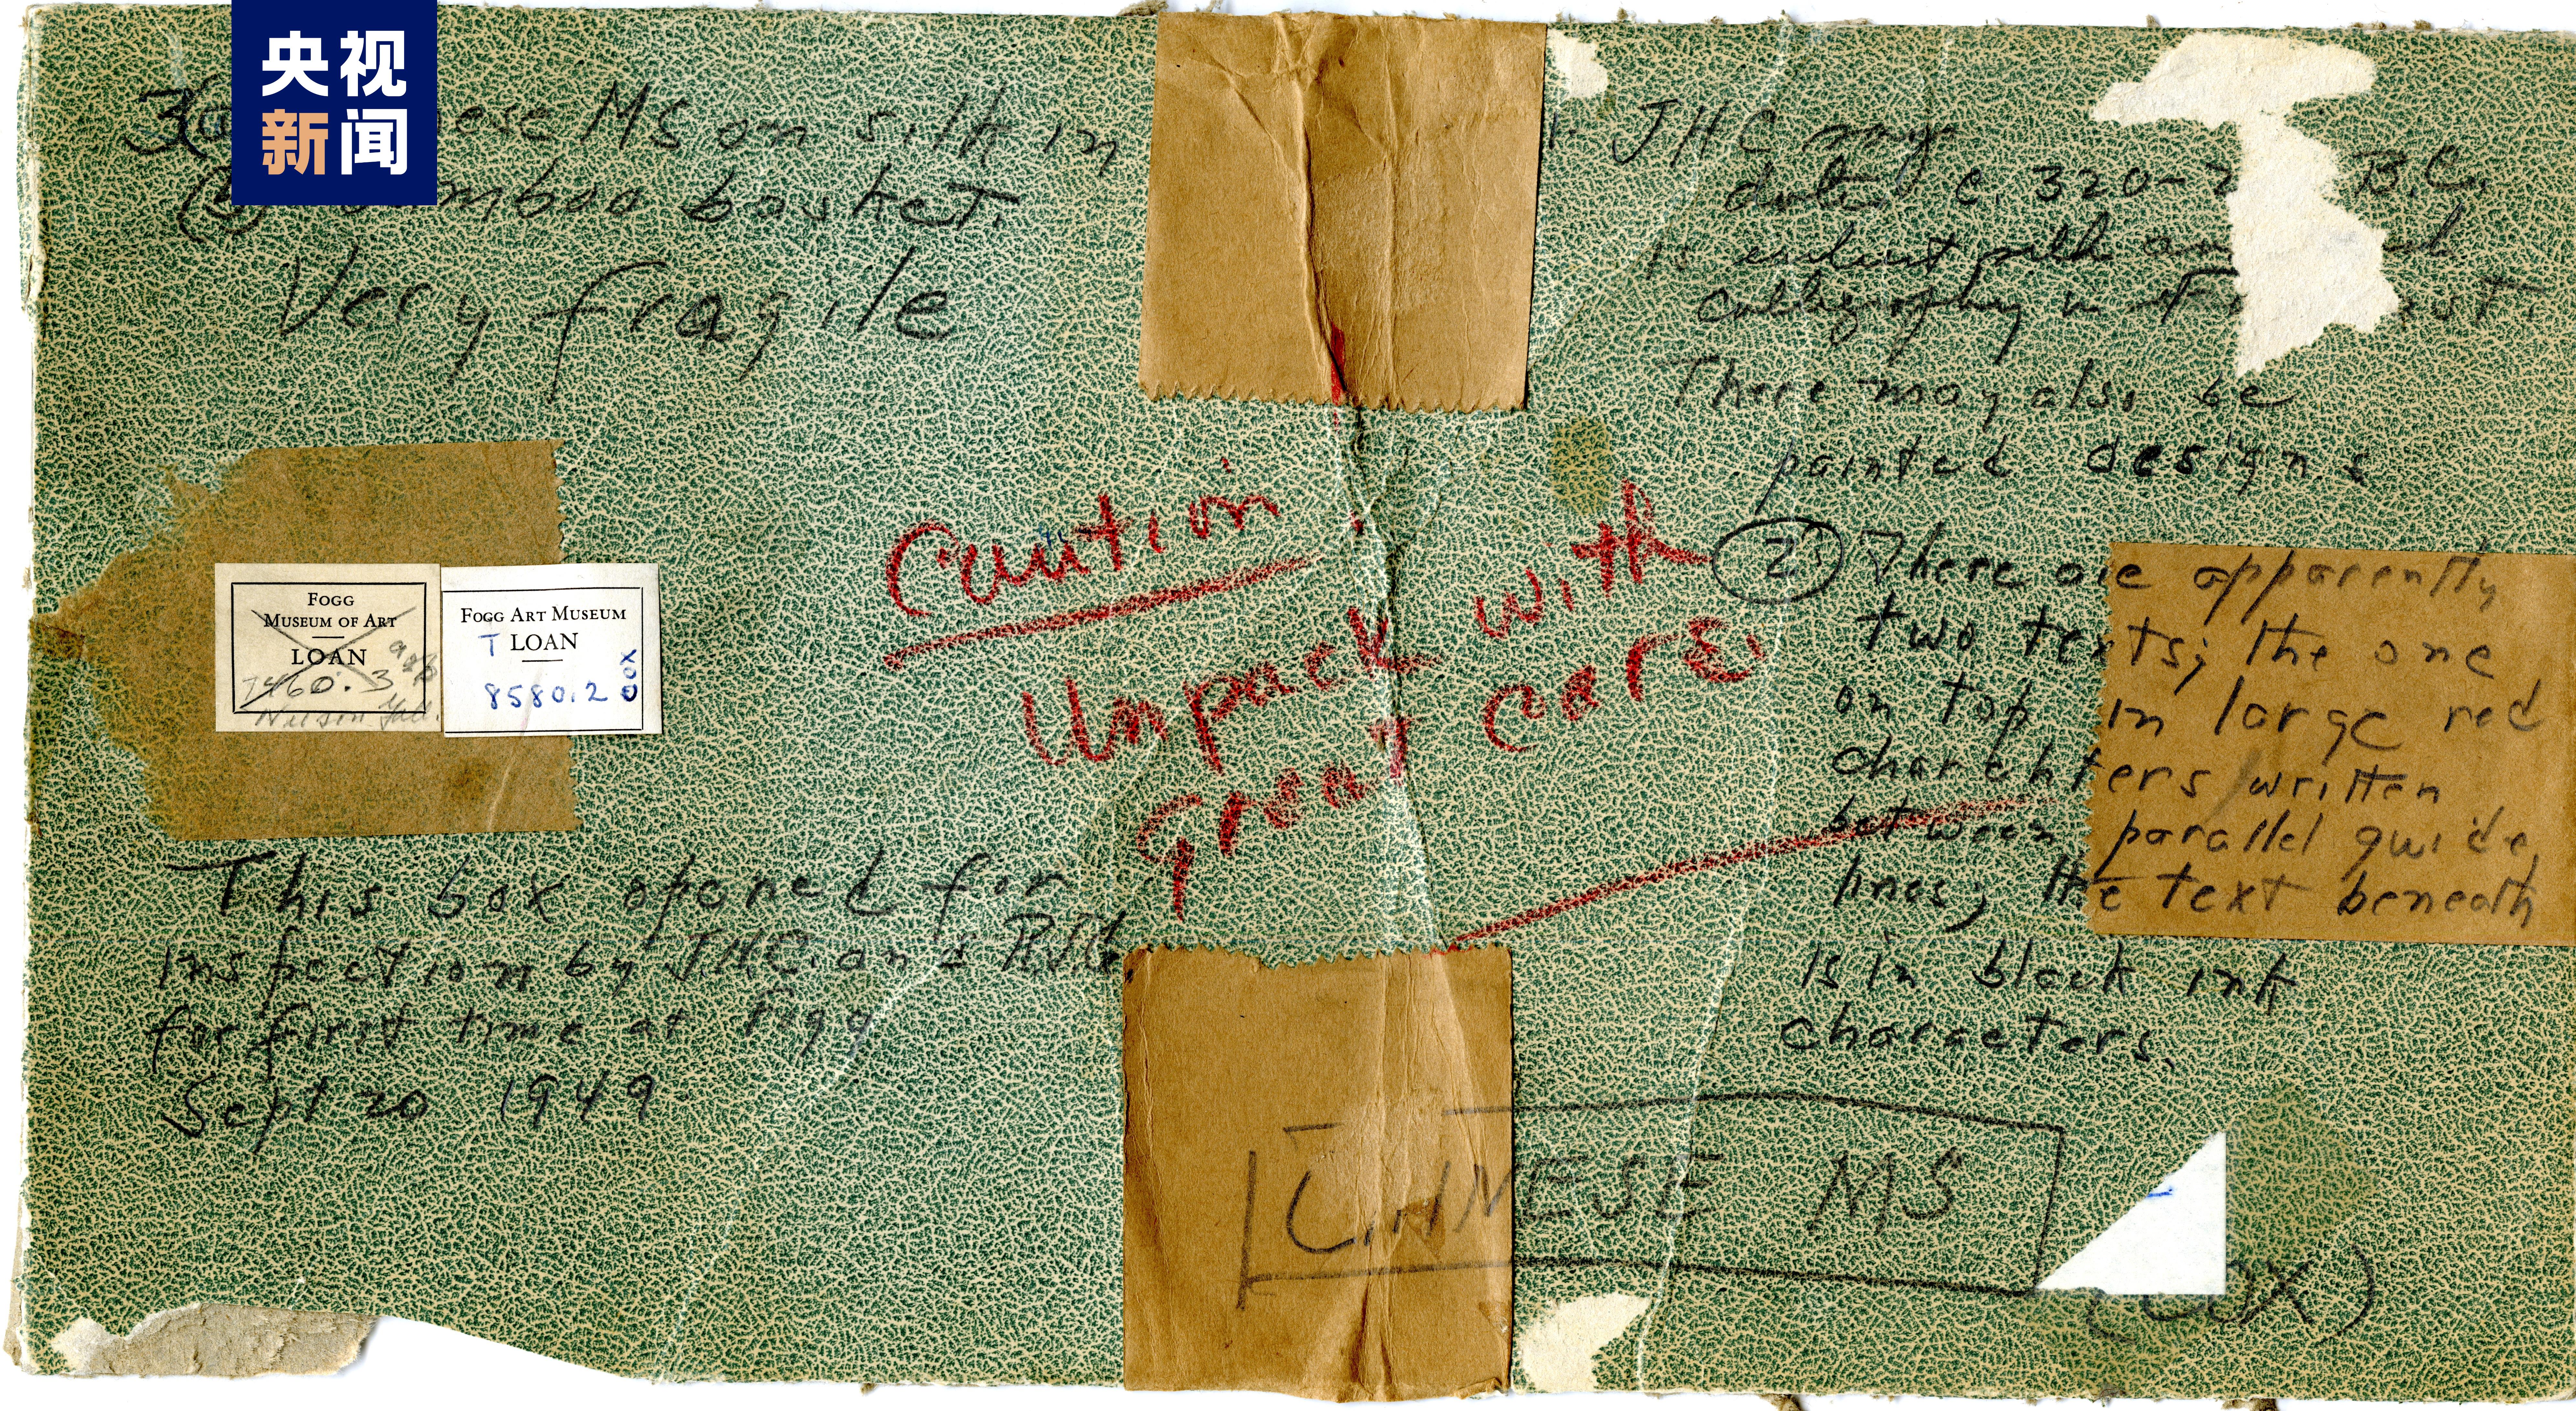 央视
新闻
3(a) ese MS on silk in
(b) bamboo basket.
Very fragile
FOGG
MUSEUM OF ART
LOAN
7460.3
Nelson Gall.
FOGG ART MUSEUM
T LOAN
8580.2
COX
This box opened for
inspection by J.H.C. and
for first time at Fogg
Sept 20 1949
Caution
Unpack with
great care
JHC says
date c. 320-2 B.C.
is earliest silk
calligraphy in
There may also be
painted designs
2. There are apparently
two texts; the one
on top in large red
charchters written
between parallel guide
lines; the text beneath
is in black ink
characters.
CHINESE MS
(COX)